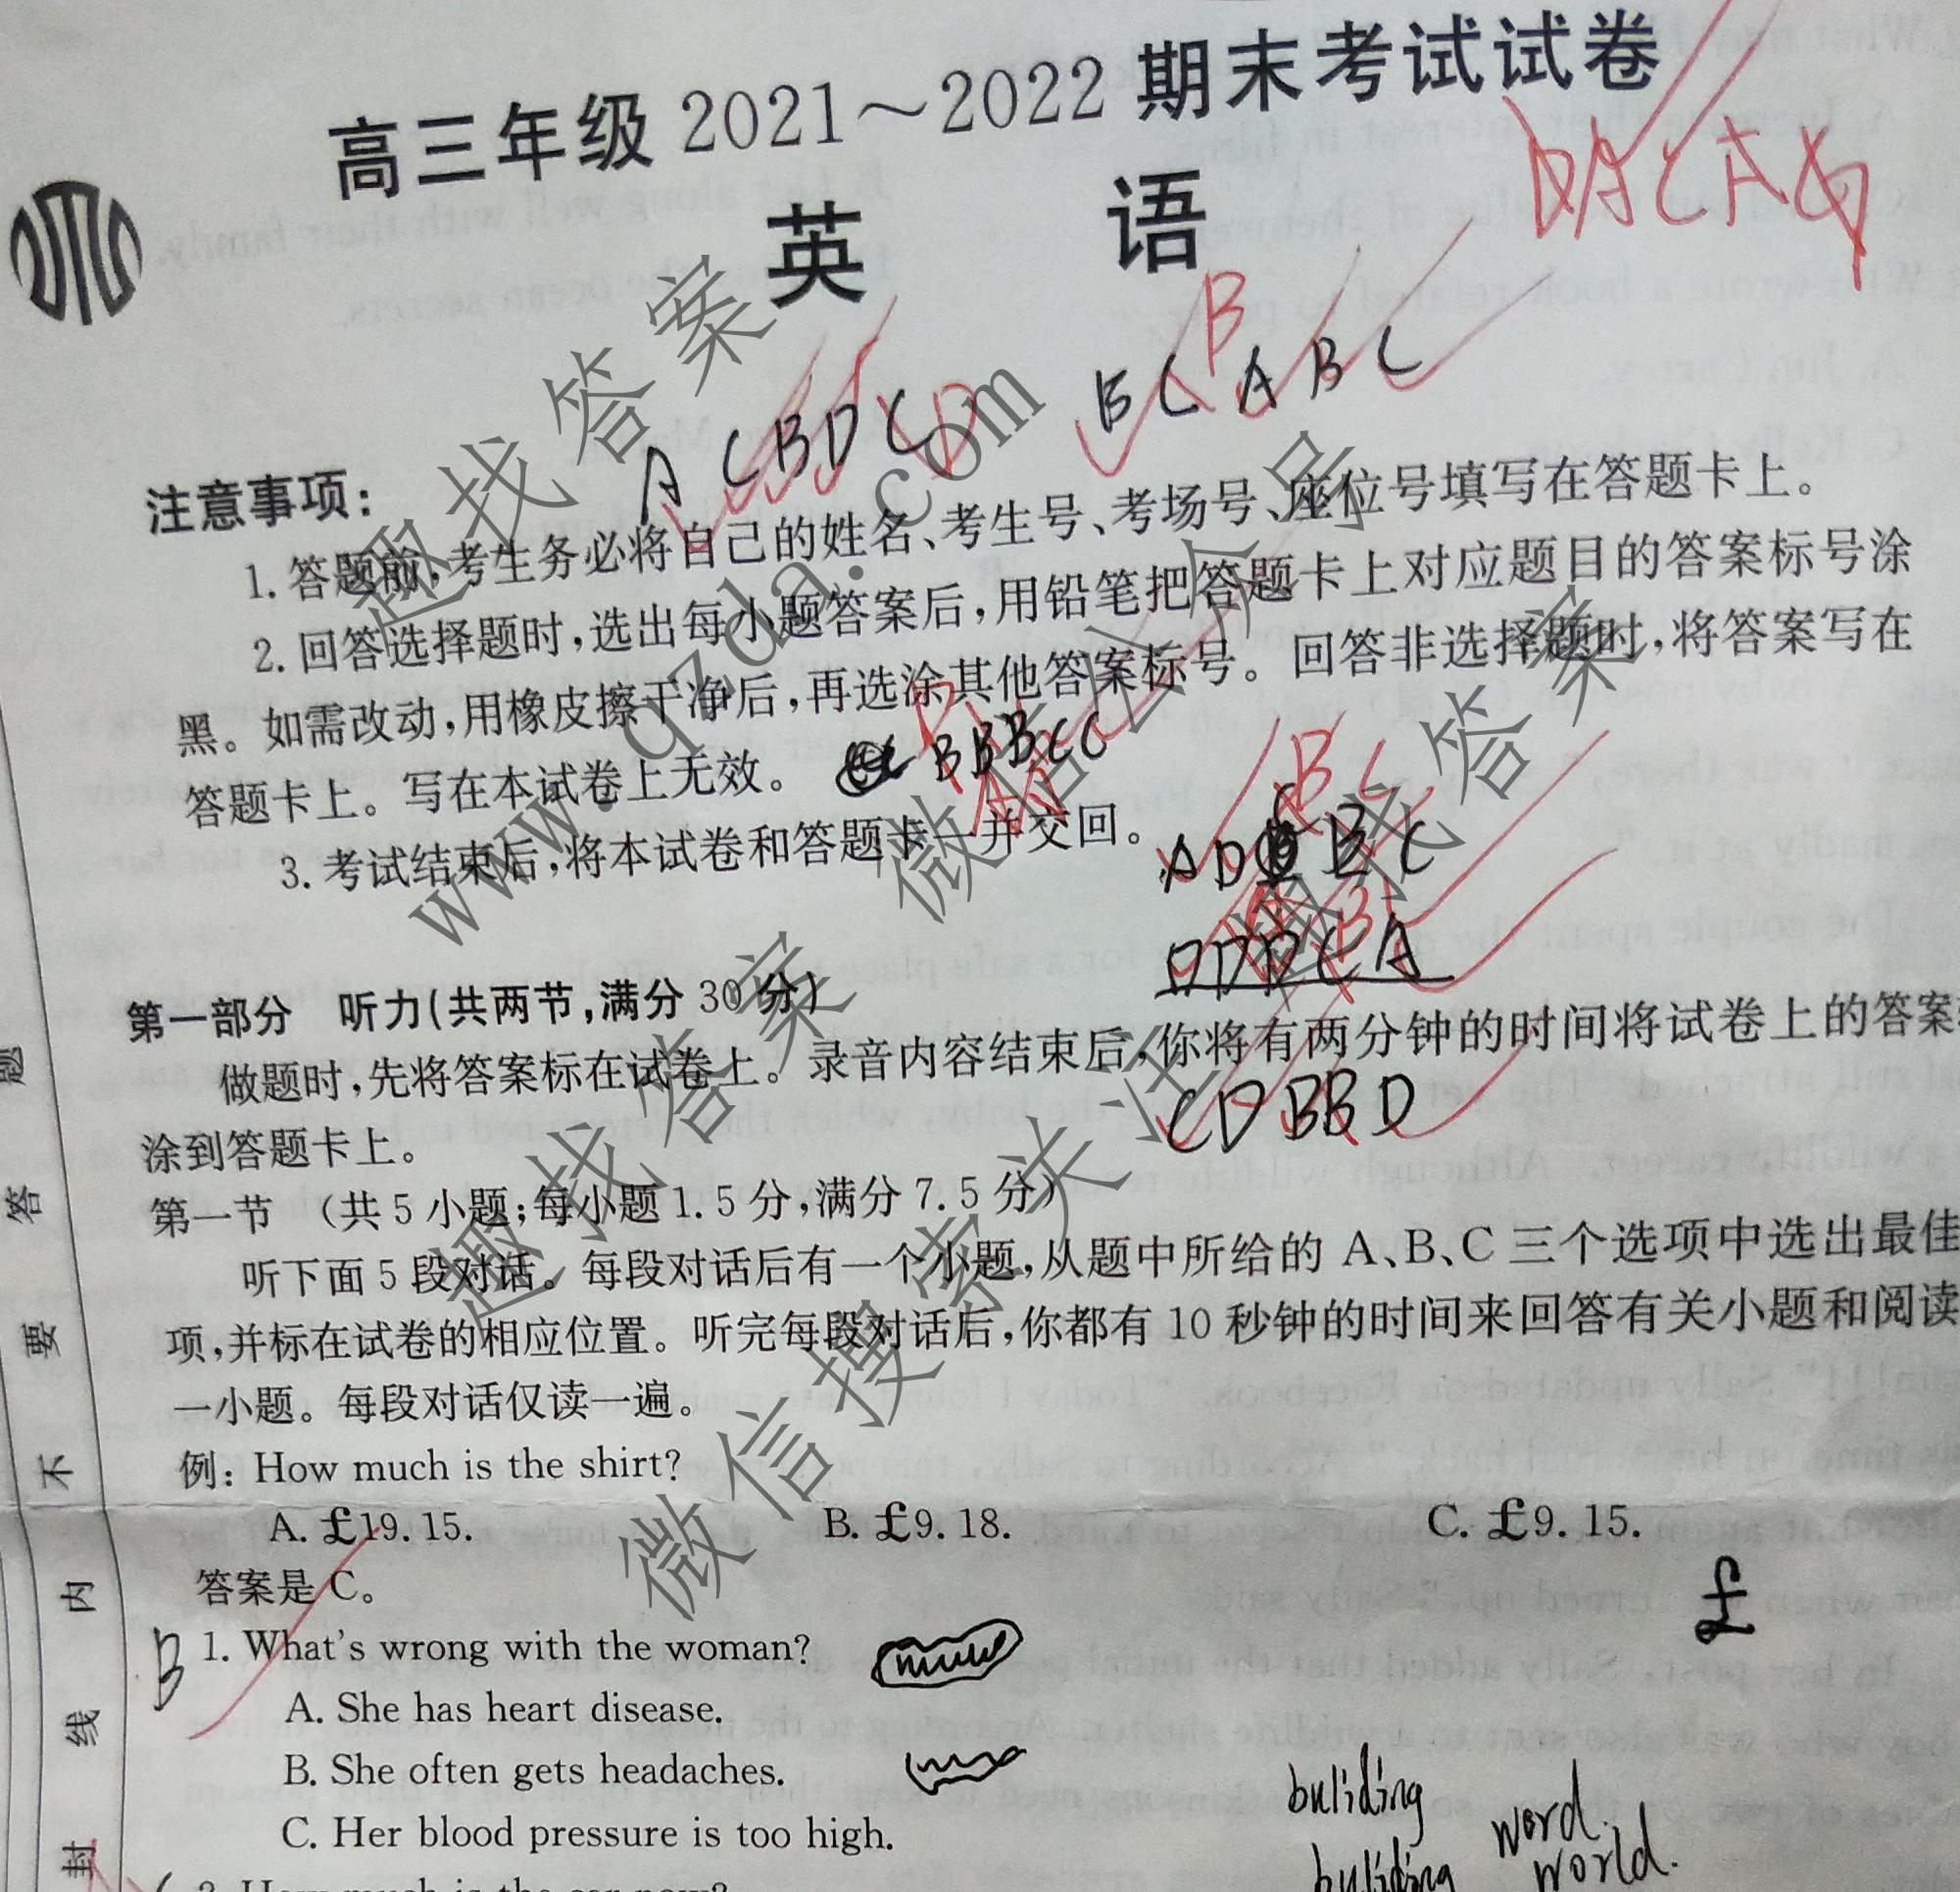 高三年级 2021～2022 期末考试试卷
DACA
英 语
B
A C B D C D
B C A B C
注意事项：
1. 答题前，考生务必将自己的姓名、考生号、考场号、座位号填写在答题卡上。
2. 回答选择题时，选出每小题答案后，用铅笔把答题卡上对应题目的答案标号涂
黑。如需改动，用橡皮擦干净后，再选涂其他答案标号。回答非选择题时，将答案写在
答题卡上。写在本试卷上无效。
B B B C C
3. 考试结束后，将本试卷和答题卡一并交回。
B C
A D B C
D D D C A
第一部分 听力（共两节，满分 30 分）
做题时，先将答案标在试卷上。录音内容结束后，你将有两分钟的时间将试卷上的答案
C D B B D
涂到答题卡上。
第一节 （共 5 小题；每小题 1.5 分，满分 7.5 分）
听下面 5 段对话。每段对话后有一个小题，从题中所给的 A、B、C 三个选项中选出最佳
项，并标在试卷的相应位置。听完每段对话后，你都有 10 秒钟的时间来回答有关小题和阅读
一小题。每段对话仅读一遍。
例：How much is the shirt?
A. £19.15.
B. £9.18.
C. £9.15.
答案是 C。
£
B
1. What's wrong with the woman?
A. She has heart disease.
B. She often gets headaches.
C. Her blood pressure is too high.
buliding
word.
buliding
world.
2. How much is the car now?
题
答
要
不
内
线
封
趣找答案
www.qzda.com
微信公众号
趣找答案
微信搜索关注
趣找答案